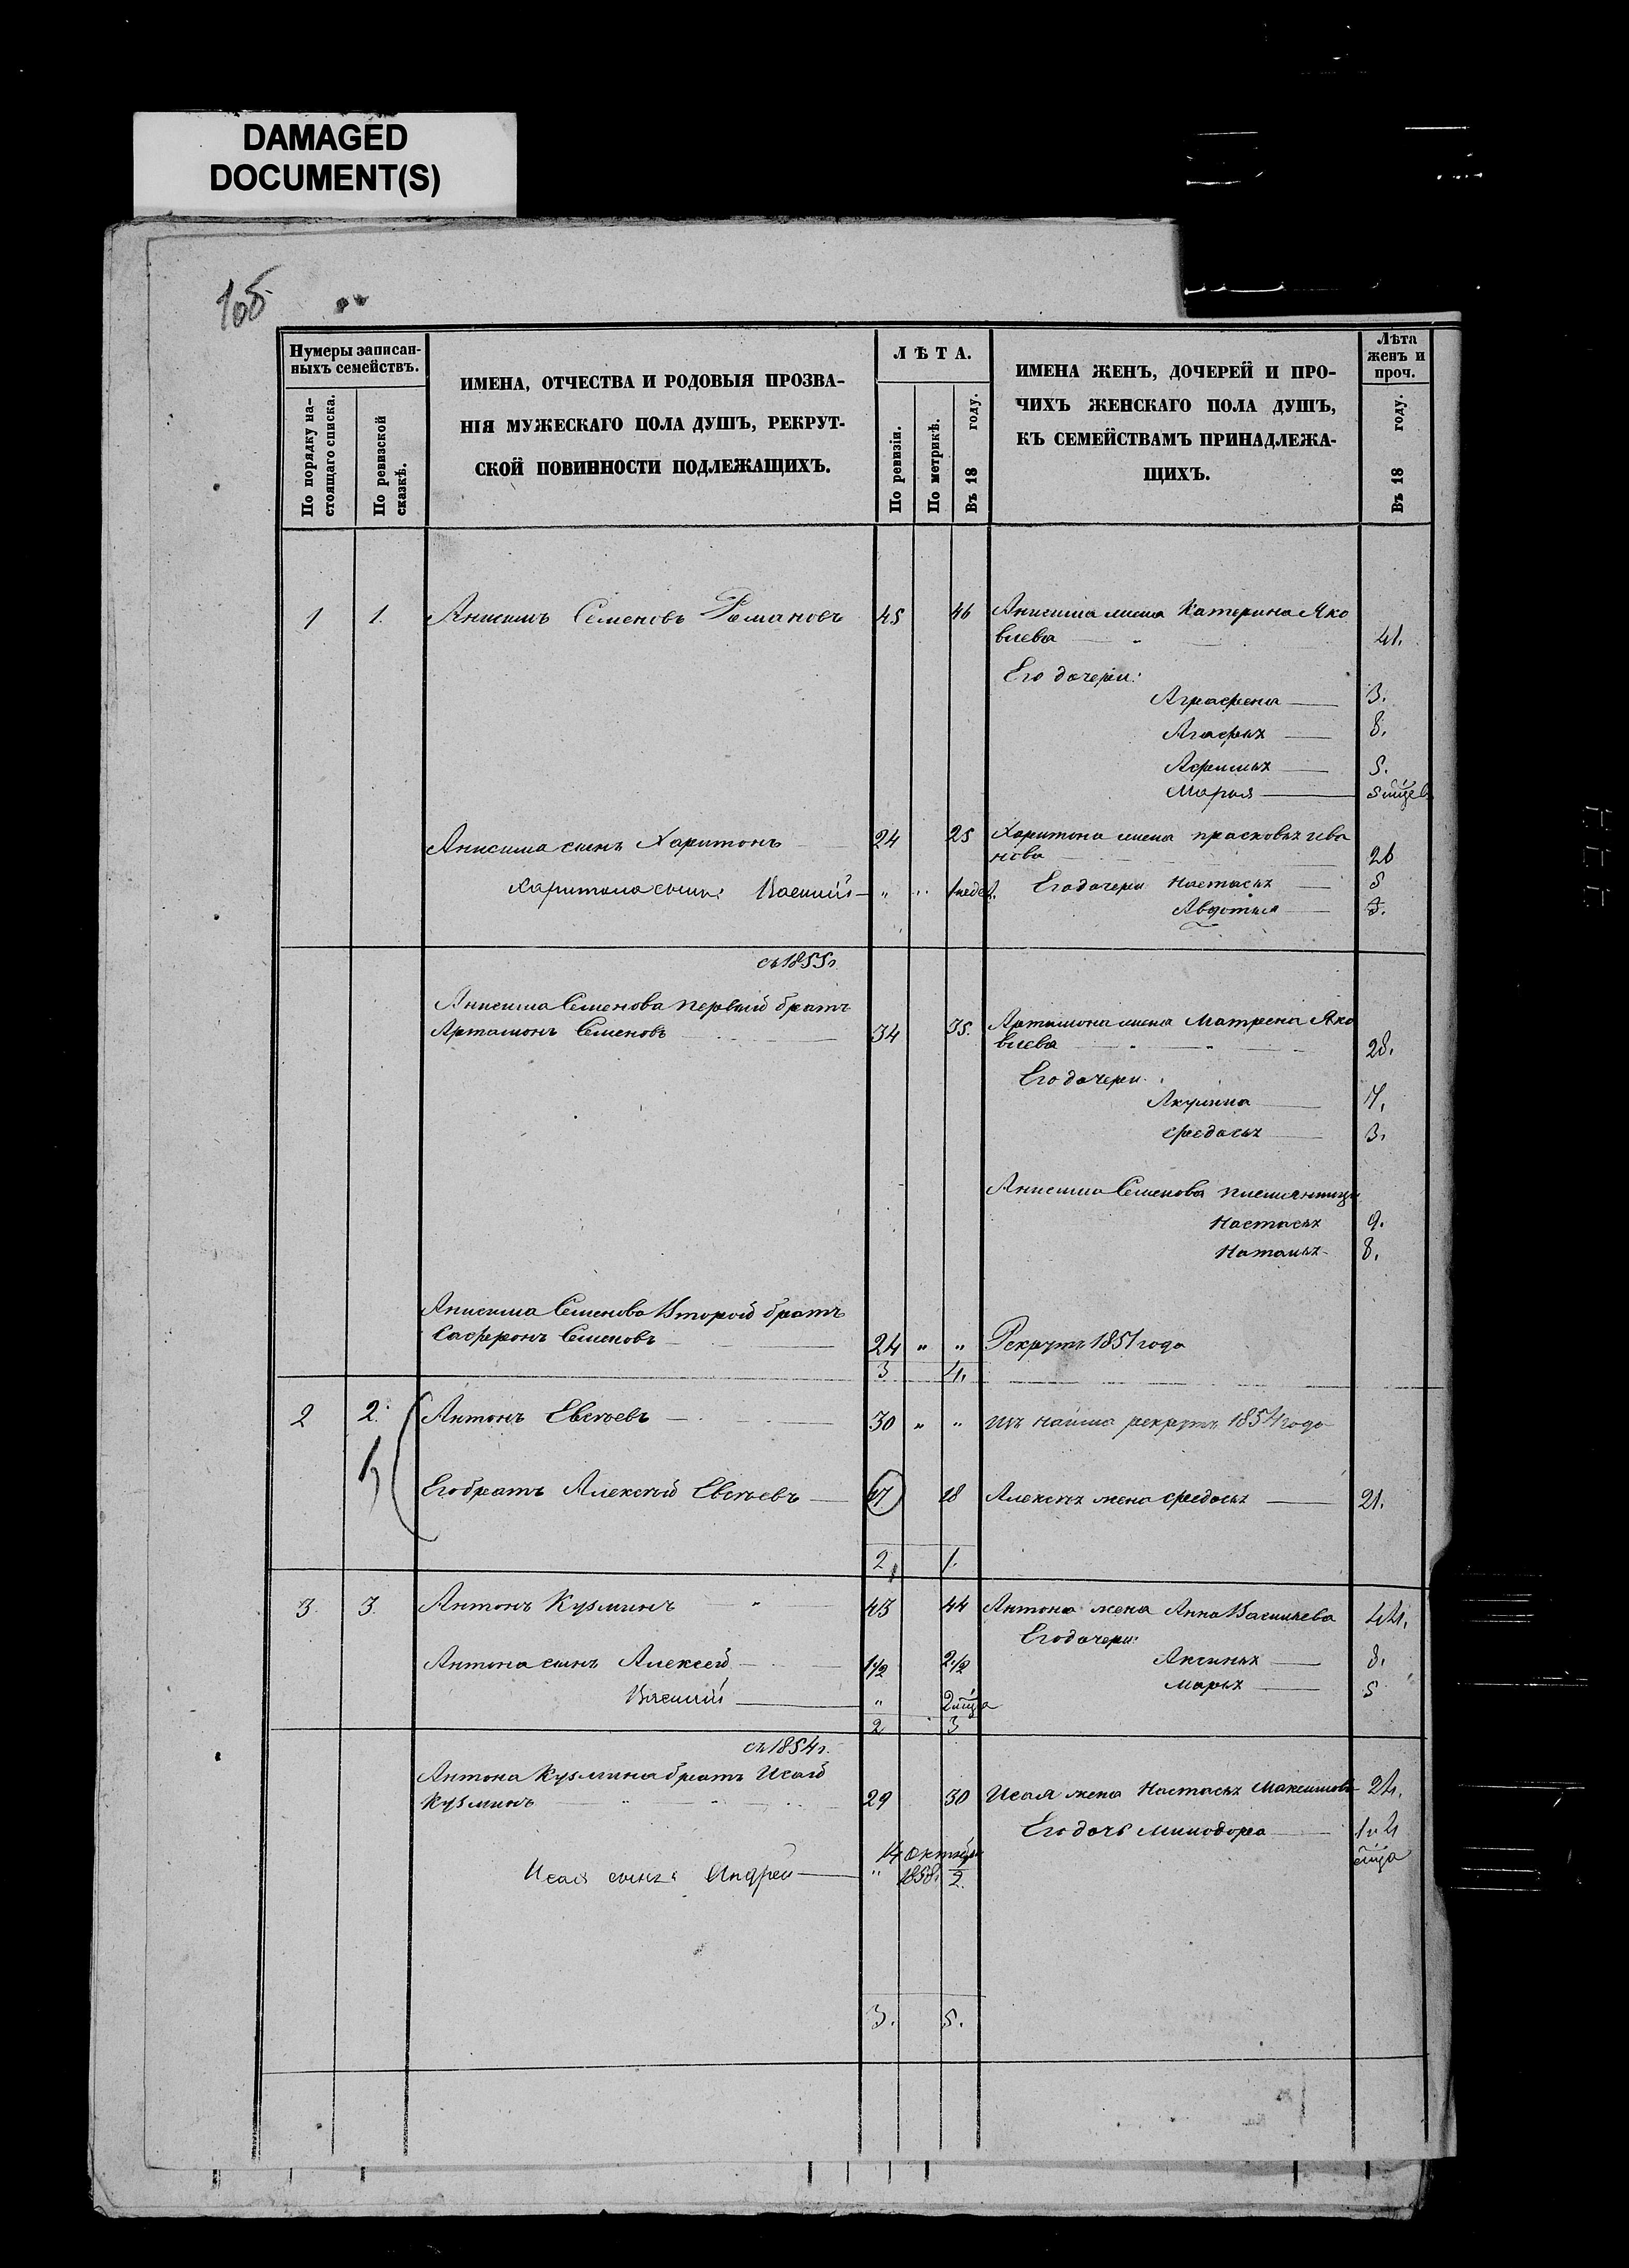 DAMAGED
DOCUMENT(S)
105
Нумеры записан-
ныхъ семействъ.
По порядку на-
стоящаго списка.
По ревизской
сказкѣ.
ИМЕНА, ОТЧЕСТВА И РОДОВЫЯ ПРОЗВА-
НІЯ МУЖЕСКАГО ПОЛА ДУШЪ, РЕКРУТ-
СКОЙ ПОВИННОСТИ ПОДЛЕЖАЩИХЪ.
ЛѢТА.
По ревизіи.
По метрикѣ.
Въ 18 году.
ИМЕНА ЖЕНЪ, ДОЧЕРЕЙ И ПРО-
ЧИХЪ ЖЕНСКАГО ПОЛА ДУШЪ,
КЪ СЕМЕЙСТВАМЪ ПРИНАДЛЕЖА-
ЩИХЪ.
Лѣта
женъ и
проч.
Въ 18 году.
1 1. Анисимъ Семеновъ Романовъ 45 46 Анисима жена Катерина Яко
влева 41.
Его дочери:
Аграфена 3.
Агафья 8.
Афимья 5.
Марья 5 мцевъ
Анисима сынъ Харитонъ 24 25 Харитона жена прасковья ива
нова 26
Харитона сынъ: Василий " 1 недел. Его дочери Настасья 5
Авдотья 3.
съ 1855 г.
Анисима Семенова первый братъ
Артамонъ Семеновъ 34 35. Артамона жена Матрена Яко
влева 28.
Его дочери
Акулина 7.
Федосья 3.
Анисима Семенова племянницы
Настасья 9.
Наталья 8.
Анисима Семенова Второй братъ
Сафронъ Семеновъ 24 " " Рекрутъ 1851 года
3 4.
2 2. Антонъ Евсѣевъ 30 " " изъ найма рекрутъ 1854 года
Его братъ Алексѣй Евсѣевъ 17 18 Алексѣя жена Федосья 21.
2 1.
3. 3. Антонъ Кузминъ 43 44 Антона жена Анна Васильева 44.
Его дочери:
Антона сынъ Алексей 1 1/2 2 1/2 Аксинья 8.
Василий " 2 мца Марья 5
2 3
съ 1854 г.
Антона Кузмина братъ Исай
Кузминъ 29 30 Исая жена Настасья Максимова 24.
Его дочь Минодора 1 и 4
мца
14 октября
Исая сынъ Андрей " 1858 2.
3. 5.